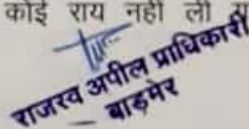 कोई राय नहीं ली
राजस्व अपील प्राधिकारी
बाड़मेर